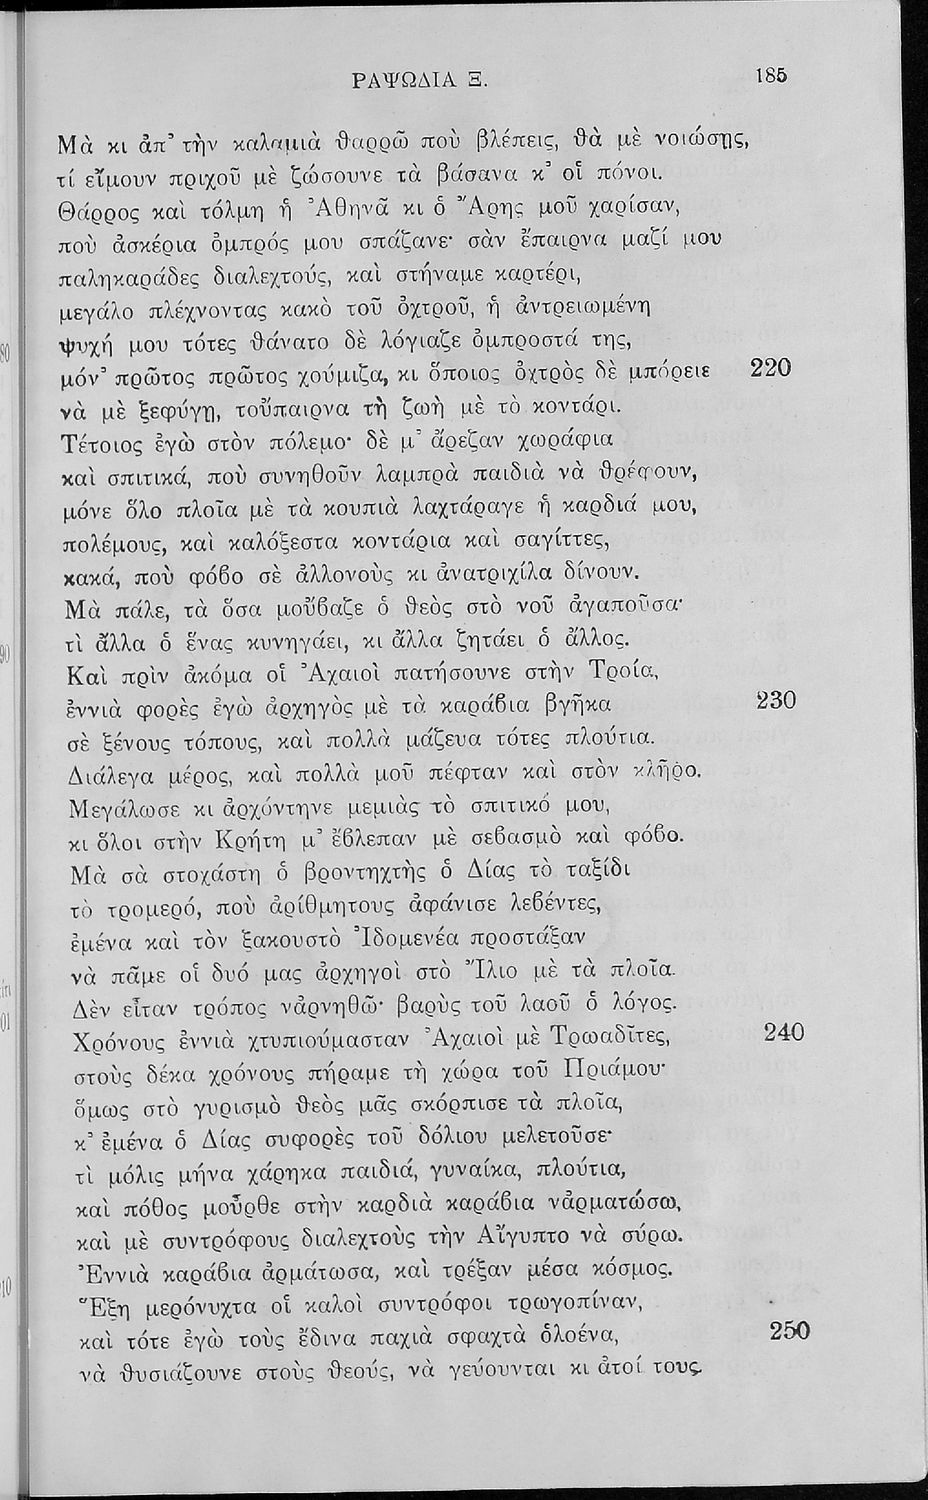 ΡΑΨΩΔΙΑ Ξ. 185
Μὰ κι ἀπ' τὴν καλαμιὰ θαρρῶ ποὺ βλέπεις, θὰ μὲ νοιώσῃς,
τί εἴμουν πριχοῦ μὲ ζώσουνε τὰ βάσανα κ' οἱ πόνοι.
Θάρρος καὶ τόλμη ἡ Ἀθηνᾶ κι ὁ Ἄρης μοῦ χαρίσαν,
ποὺ ἀσκέρια ὀμπρός μου σπάζανε· σὰν ἔπαιρνα μαζί μου
παληκαράδες διαλεχτούς, καὶ στήναμε καρτέρι,
μεγάλο πλέχνοντας κακὸ τοῦ ὀχτροῦ, ἡ ἀντρειωμένη
ψυχή μου τότες θάνατο δὲ λόγιαζε ὀμπροστά της,
μόν' πρῶτος πρῶτος χούμιζα, κι ὅποιος ὀχτρὸς δὲ μπόρειε 220
νὰ μὲ ξεφύγῃ, τοὔπαιρνα τὴ ζωὴ μὲ τὸ κοντάρι.
Τέτοιος ἐγὼ στὸν πόλεμο· δὲ μ' ἄρεζαν χωράφια
καὶ σπιτικά, ποὺ συνηθοῦν λαμπρὰ παιδιὰ νὰ θρέφουν,
μόνε ὅλο πλοῖα μὲ τὰ κουπιὰ λαχτάραγε ἡ καρδιά μου,
πολέμους, καὶ καλόξεστα κοντάρια καὶ σαγίττες,
κακά, ποὺ φόβο σὲ ἀλλονοὺς κι ἀνατριχίλα δίνουν.
Μὰ πάλε, τὰ ὅσα μοὔβαζε ὁ θεὸς στὸ νοῦ ἀγαποῦσα·
τὶ ἄλλα ὁ ἕνας κυνηγάει, κι ἄλλα ζητάει ὁ ἄλλος.
Καὶ πρὶν ἀκόμα οἱ Ἀχαιοὶ πατήσουνε στὴν Τροία,
ἐννιὰ φορὲς ἐγὼ ἀρχηγὸς μὲ τὰ καράβια βγῆκα 230
σὲ ξένους τόπους, καὶ πολλὰ μάζευα τότες πλούτια.
Διάλεγα μέρος, καὶ πολλὰ μοῦ πέφταν καὶ στὸν κλῆρο.
Μεγάλωσε κι ἀρχόντηνε μεμιὰς τὸ σπιτικό μου,
κι ὅλοι στὴν Κρήτη μ' ἔβλεπαν μὲ σεβασμὸ καὶ φόβο.
Μὰ σὰ στοχάστη ὁ βροντηχτὴς ὁ Δίας τὸ ταξίδι
τὸ τρομερό, ποὺ ἀρίθμητους ἀφάνισε λεβέντες,
ἐμένα καὶ τὸν ξακουστὸ Ἰδομενέα προστάξαν
νὰ πᾶμε οἱ δυό μας ἀρχηγοὶ στὸ Ἴλιο μὲ τὰ πλοῖα.
Δὲν εἶταν τρόπος νἀρνηθῶ· βαρὺς τοῦ λαοῦ ὁ λόγος.
Χρόνους ἐννιὰ χτυπιούμασταν Ἀχαιοὶ μὲ Τρωαδῖτες, 240
στοὺς δέκα χρόνους πήραμε τὴ χώρα τοῦ Πριάμου·
ὅμως στὸ γυρισμὸ θεὸς μᾶς σκόρπισε τὰ πλοῖα,
κ' ἐμένα ὁ Δίας συφορὲς τοῦ δόλιου μελετοῦσε·
τὶ μόλις μήνα χάρηκα παιδιά, γυναίκα, πλούτια,
καὶ πόθος μοὖρθε στὴν καρδιὰ καράβια νἀρματώσω,
καὶ μὲ συντρόφους διαλεχτοὺς τὴν Αἴγυπτο νὰ σύρω.
Ἐννιὰ καράβια ἀρμάτωσα, καὶ τρέξαν μέσα κόσμος.
Ἕξη μερόνυχτα οἱ καλοὶ συντρόφοι τρωγοπίναν,
καὶ τότε ἐγὼ τοὺς ἔδινα παχιὰ σφαχτὰ ὁλοένα, 250
νὰ θυσιάζουνε στοὺς θεούς, νὰ γεύουνται κι ἀτοί τους.